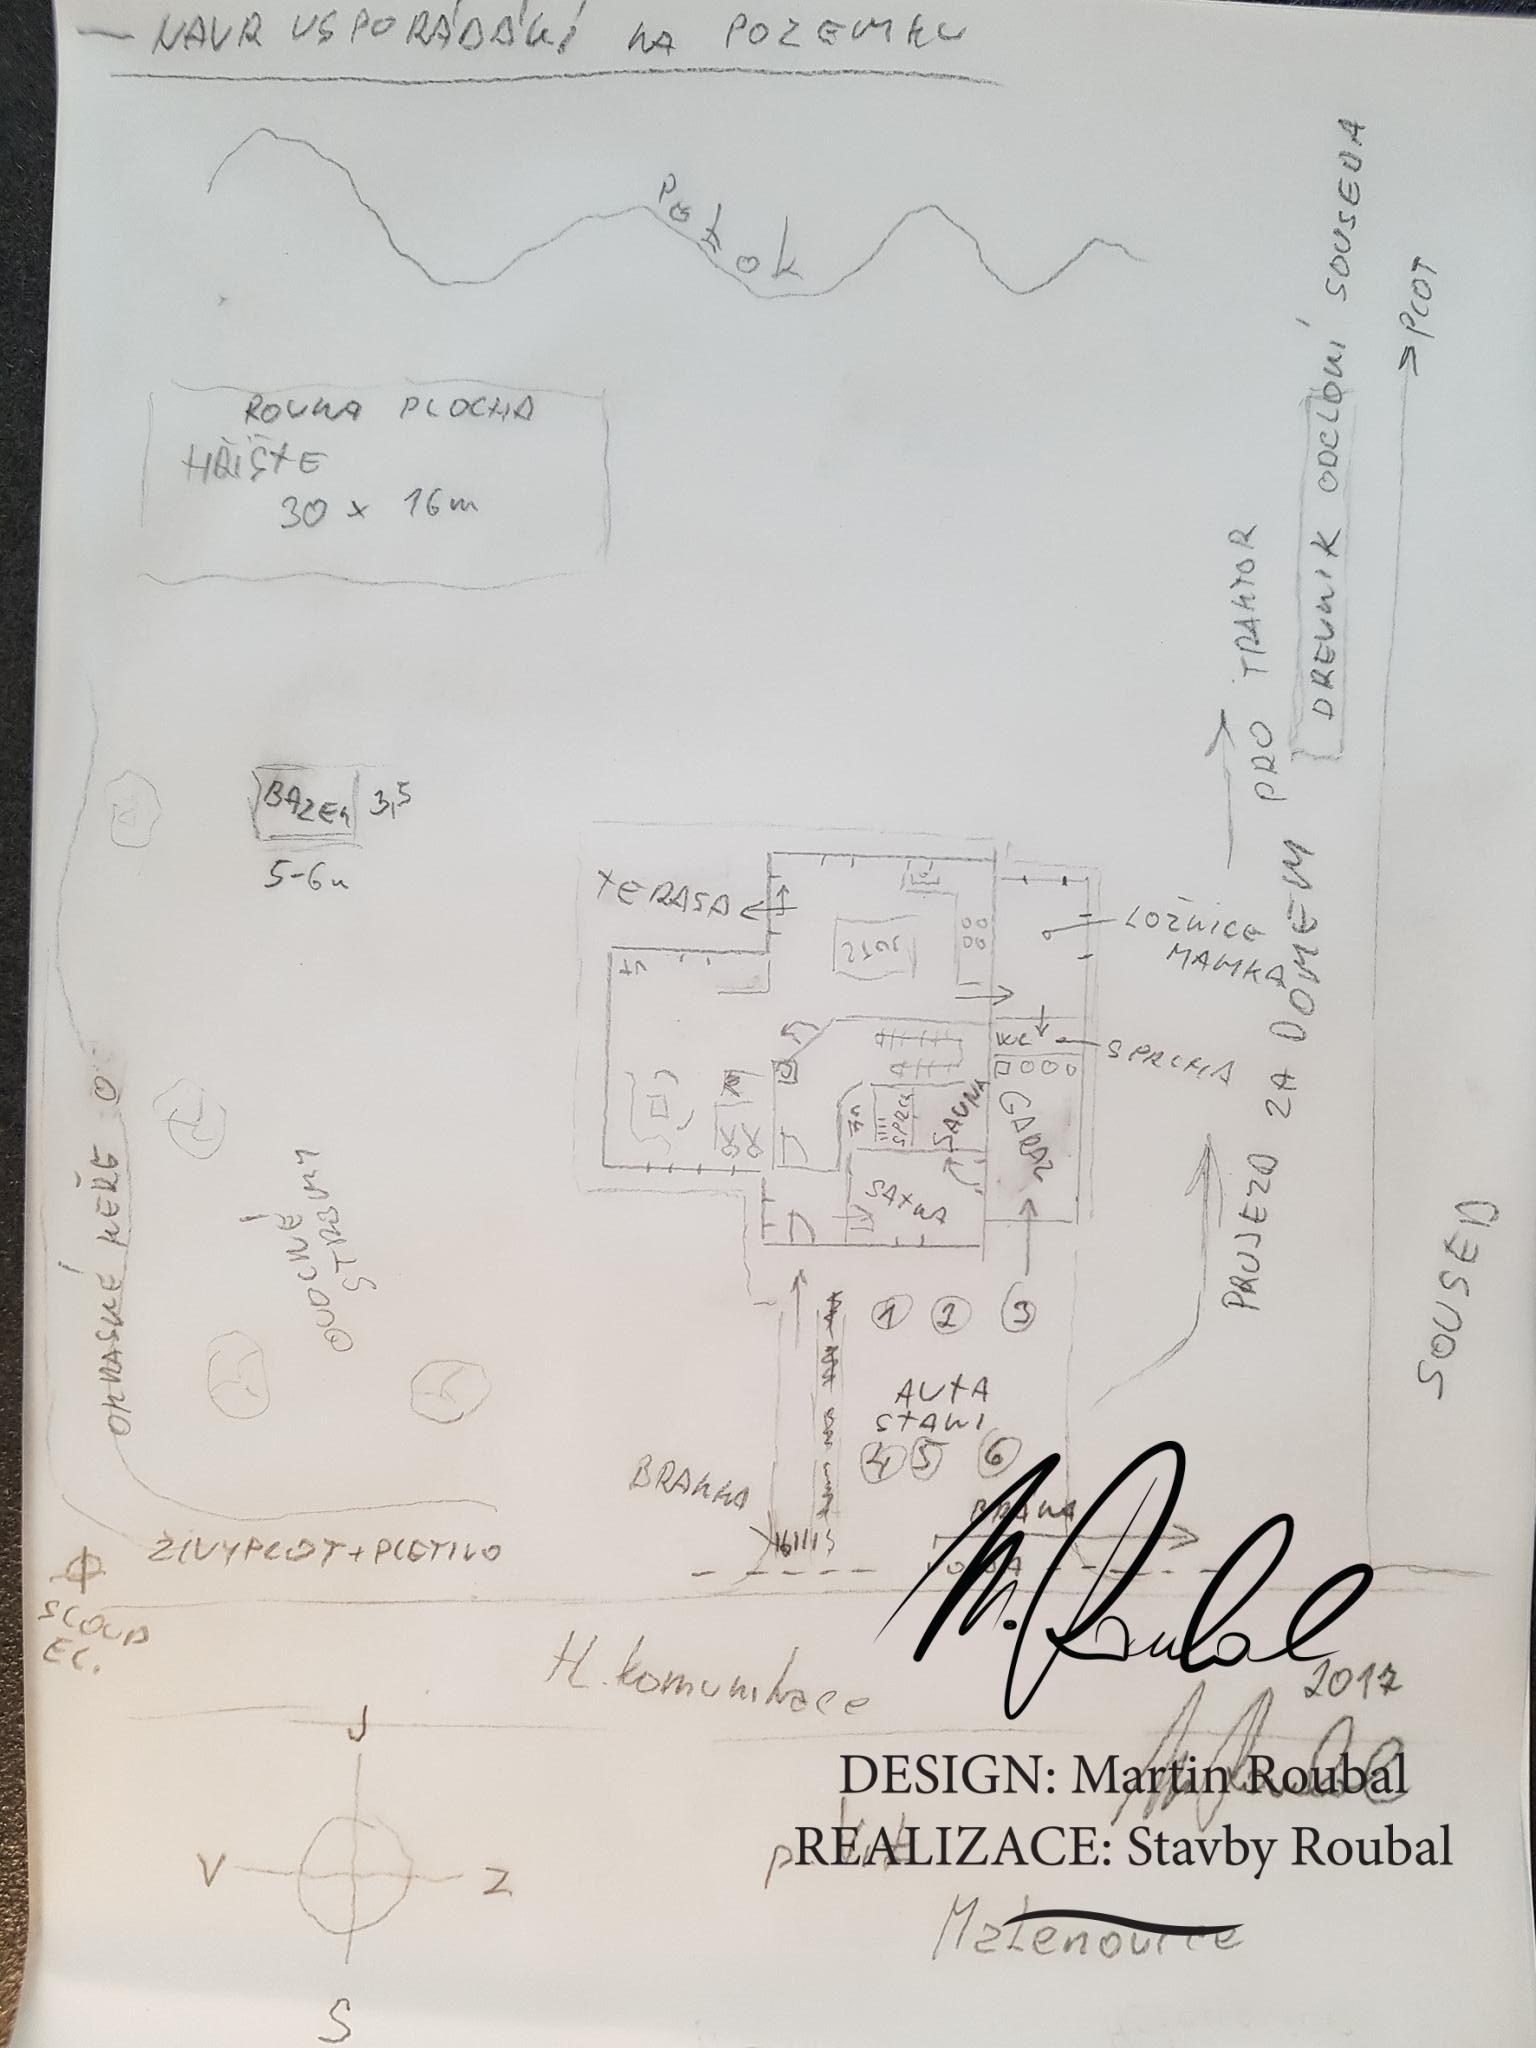 NAVR USPORÁDÁNÍ NA POZEMKU
Potok
ROVNA PLOCHA
HŘIŠTE
30 x 16m
DREVNIK ODCLONÍ SOUSEDA
PLOT
BAZEN 3,5
5-6m
PRUJEZD ZA DOMEM PRO TRAKTOR
TERASA
STUL
TV
LOŽNICE
MAMKA
WC
SPRCHA
SPRCH
SAUNA
GARAZ
SATNA
OKRASNÉ KEŘE
OVOCNÉ
STROMY
1 2 3
AUTA
STANI
4 5 6
SOUSED
BRANKA
BRANA
ZIVYPLOT + PLETIVO
SLOUP
EL.
H. komunikace
M. Roubal
2017
J
V Z
S
DESIGN: Martin Roubal
REALIZACE: Stavby Roubal